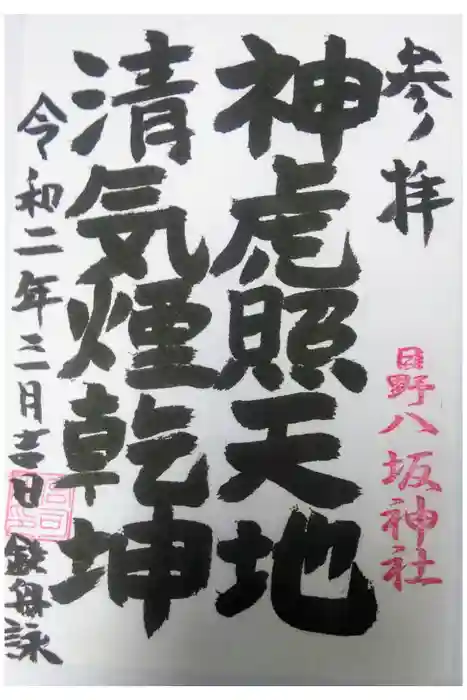 参拝
日野八坂神社
神虎照天地
清気煙乾坤
令和二年三月吉日
鉄舟詠